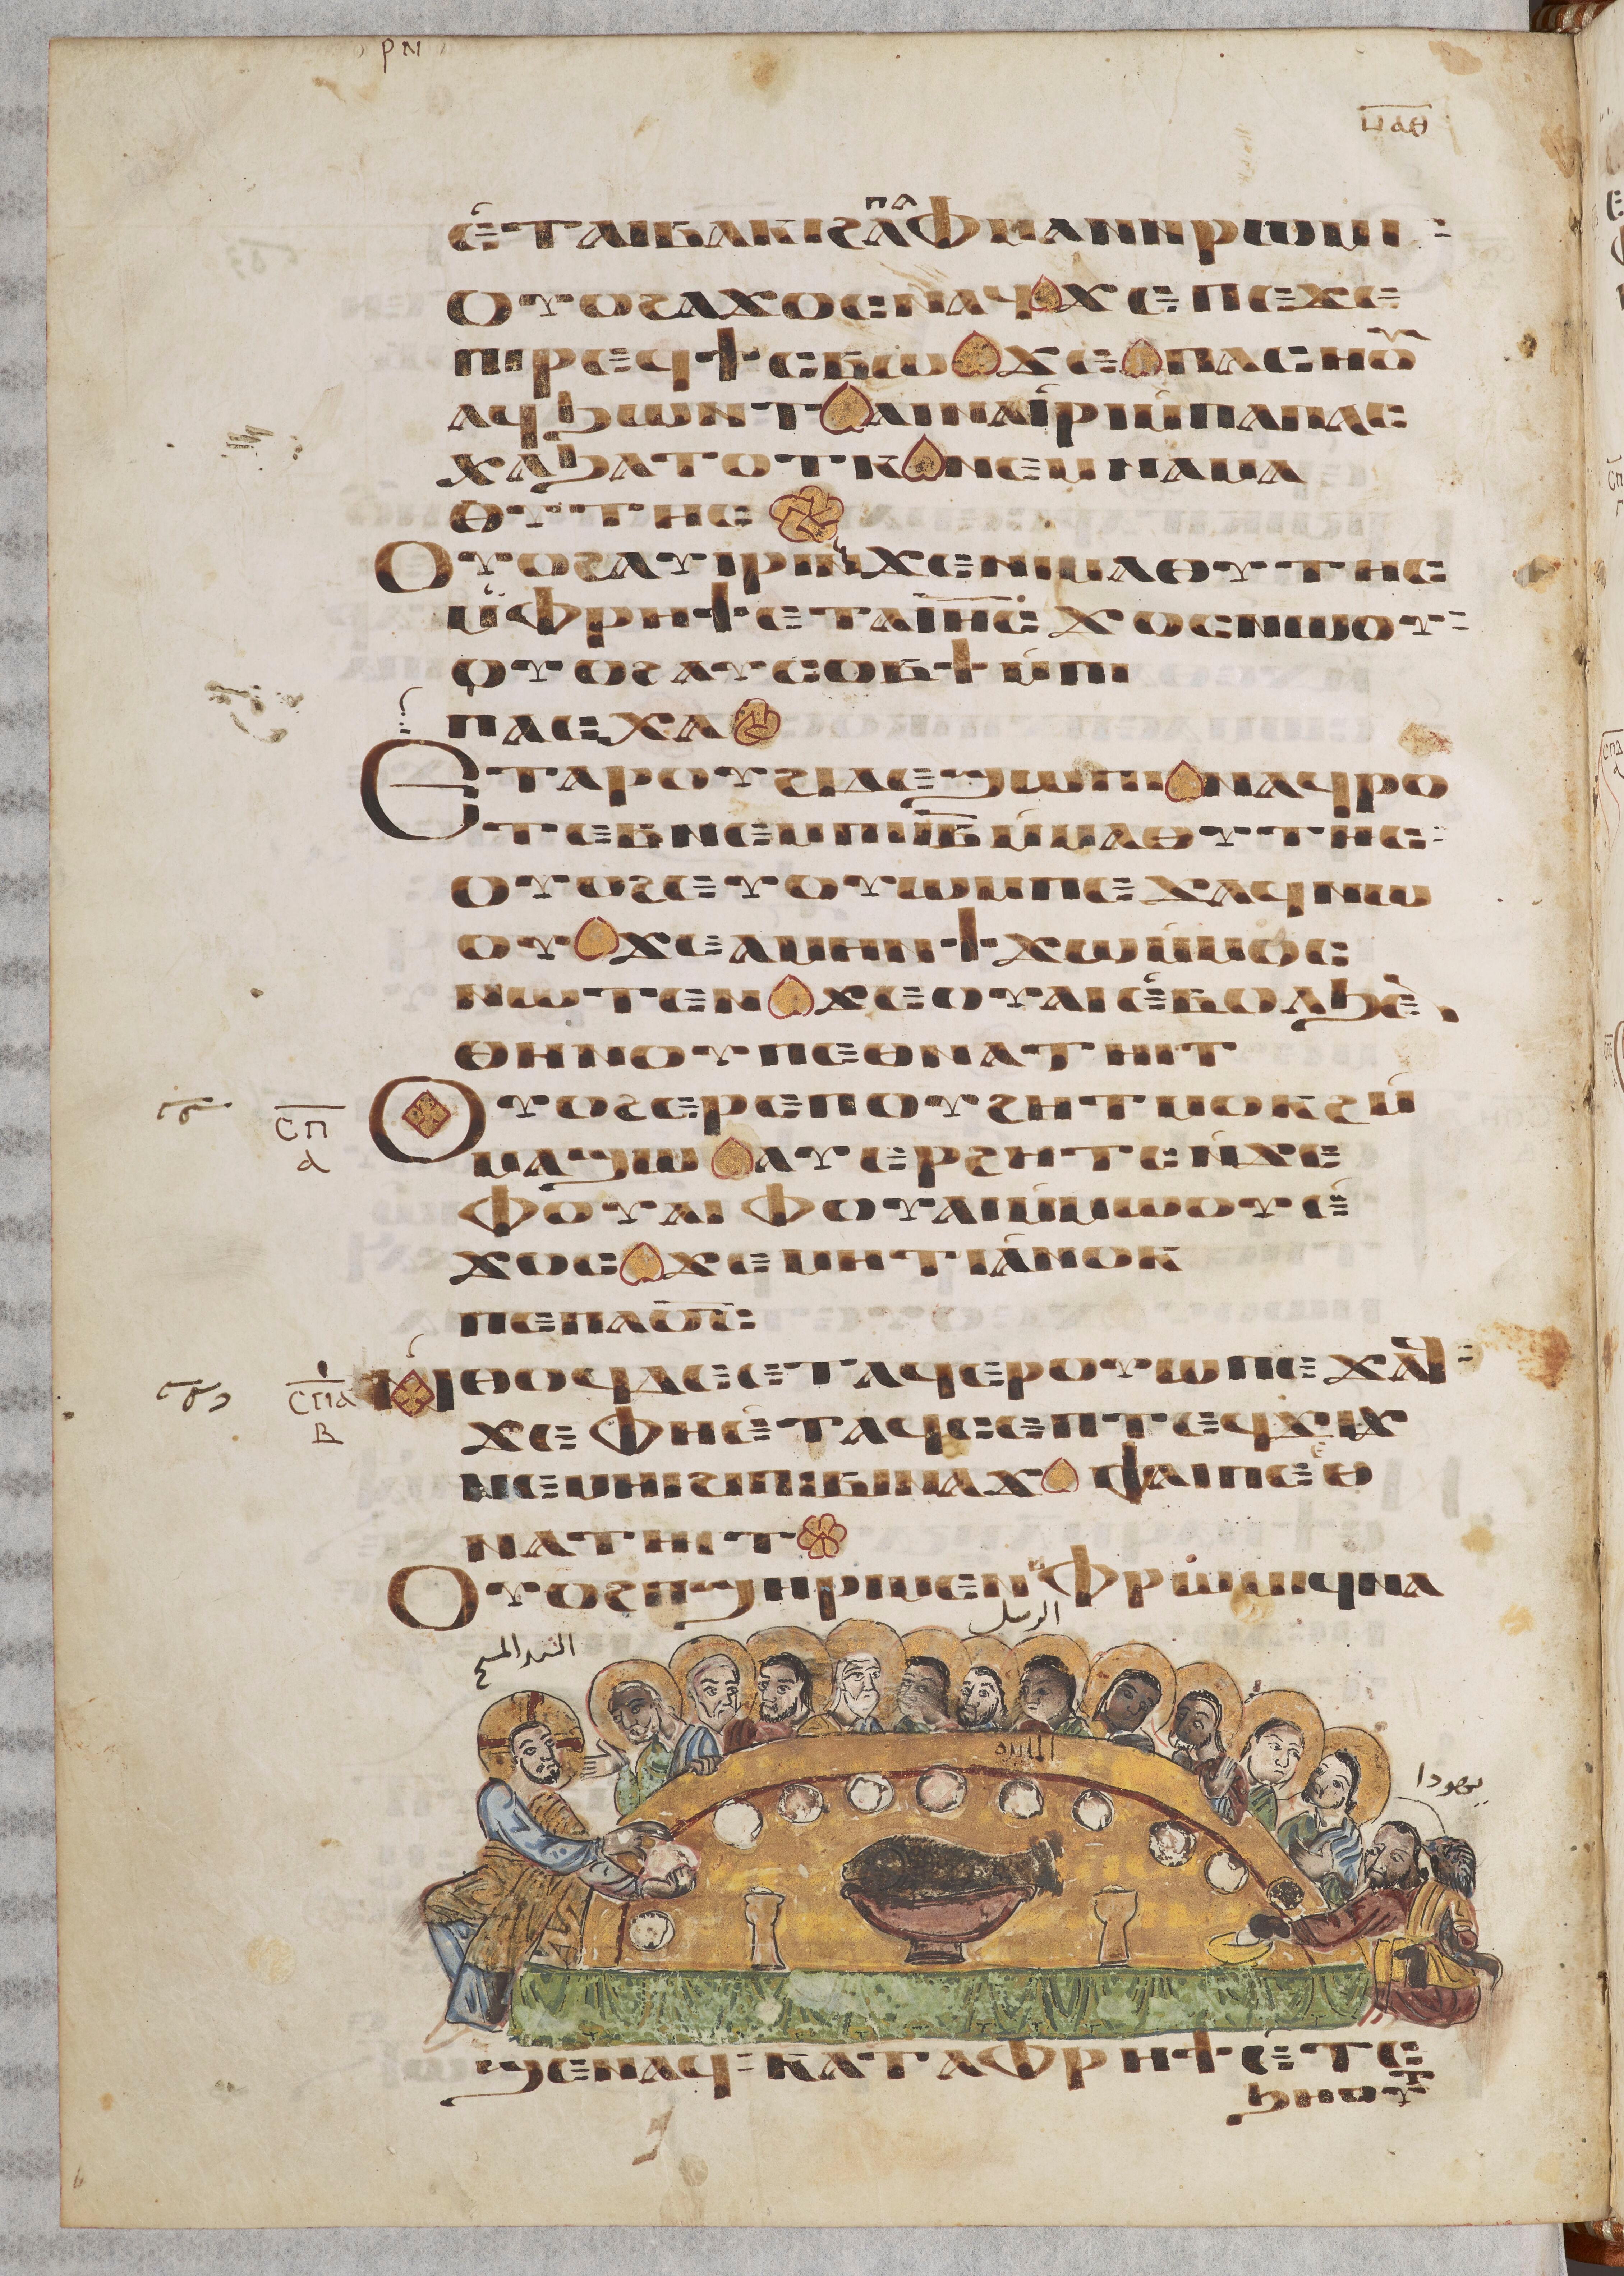 ⲣⲛ
ⲙⲁⲑ
ⲡⲁ
ⲉ̀ⲧⲁⲓⲃⲁⲕⲓϩⲁⲫⲙⲁⲛⲛⲓⲣⲱⲙⲓ
ⲟⲩⲟϩⲁϫⲟⲥⲛⲁϥϫⲉⲡⲉϫⲉ
ⲡⲓⲣⲉϥϯⲥⲃⲱϫⲉⲡⲁⲥⲏⲟⲩ
ⲁϥϧⲱⲛⲧⲁⲓⲛⲁⲓⲣⲓⲙ̀ⲡⲁⲡⲁⲥ
ⲭⲁϧⲁⲧⲟⲧⲕⲛⲉⲙⲛⲁⲙⲁ
ⲑⲩⲧⲏⲥ
ⲟⲩⲟϩⲁⲩⲓⲣⲓⲛ̀ϫⲉⲛⲓⲙⲁⲑⲩⲧⲏⲥ
ⲙ̀ⲫⲣⲏϯⲉⲧⲁⲓⲏ̅ⲥ̅ϫⲟⲥⲛⲱⲟⲩ
ⲟⲩⲟϩⲁⲩⲥⲟⲃϯⲙ̀ⲡⲓ
ⲡⲁⲥⲭⲁ
ⲉⲧⲁⲣⲟⲩϩⲓⲇⲉϣⲱⲡⲓⲛⲁϥⲣⲟ
ⲧⲉⲃⲛⲉⲙⲡⲓⲓ̅ⲃ̅ⲙ̀ⲙⲁⲑⲩⲧⲏⲥ
ⲟⲩⲟϩⲉⲩⲟⲩⲱⲙⲡⲉϫⲁϥⲛⲱ
ⲟⲩϫⲉⲁⲙⲏⲛϯϫⲱⲙ̀ⲙⲟⲥ
ⲛⲱⲧⲉⲛϫⲉⲟⲩⲁⲓⲉ̀ⲃⲟⲗϧⲉⲛ
ⲑⲏⲛⲟⲩⲡⲉⲑⲛⲁⲧⲏⲓⲧ
ⲥⲡ
ⲁ
ⲟⲩⲟϩⲉⲣⲉⲡⲟⲩϩⲏⲧⲙⲟⲕϩⲙ̀
ⲙⲁϣⲱⲁⲩⲉⲣϩⲏⲧⲥⲛ̀ϫⲉ
ⲫⲟⲩⲁⲓⲫⲟⲩⲁⲓⲙ̀ⲙⲱⲟⲩⲉ̀
ϫⲟⲥϫⲉⲙⲏⲧⲓⲁ̀ⲛⲟⲕ
ⲡⲉⲡⲁⲟ̅ⲥ̅
ⲥⲡⲁ
ⲃ
ⲛ̀ⲑⲟϥⲇⲉⲉⲧⲁϥⲉⲣⲟⲩⲱⲡⲉϫⲁϥ
ϫⲉⲫⲏⲉ̀ⲧⲁϥⲥⲉⲡⲧⲉϥϫⲓϫ
ⲛⲉⲙⲏⲓϩⲓⲡⲓⲃⲓⲛⲁϫⲫⲁⲓⲡⲉⲑ
ⲛⲁⲧⲏⲓⲧ
ⲟⲩⲟϩⲡϣⲏⲣⲓⲙⲉⲛⲙ̀ⲫⲣⲱⲙⲓϥⲛⲁ
الرسل
السيد المسيح
المايده
يهودا
ϣⲉⲛⲁϥⲕⲁⲧⲁⲫⲣⲏϯⲉ̀ⲧⲥ
ϧⲏⲟⲩⲧ